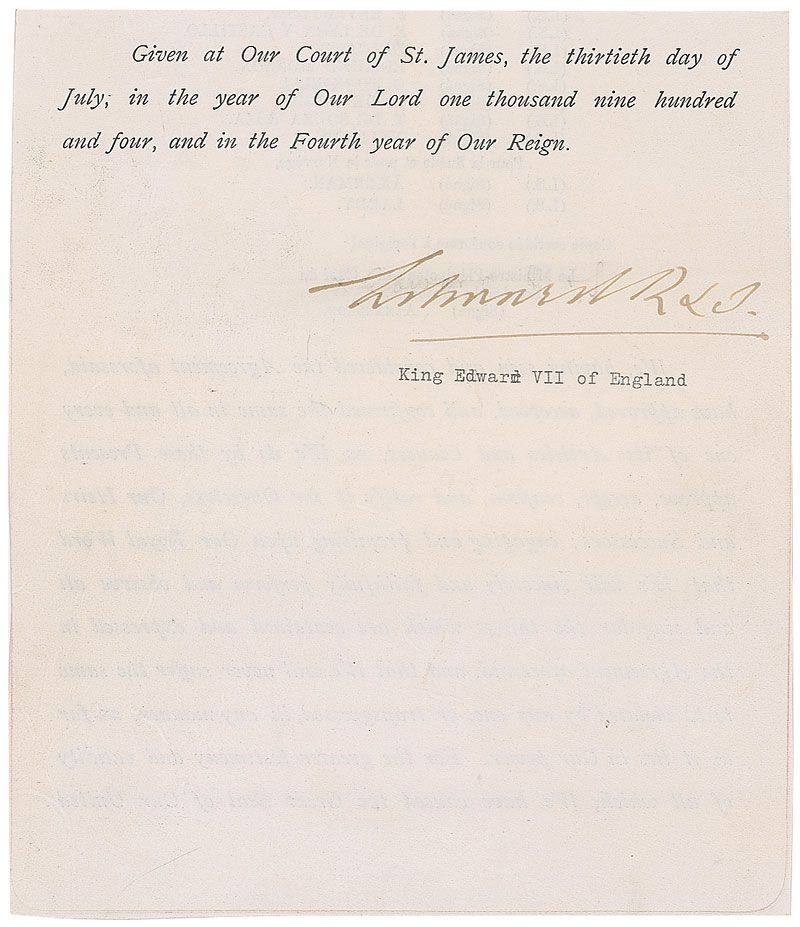 Given at Our Court of St. James, the thirtieth day of
July, in the year of Our Lord one thousand nine hundred
and four, and in the Fourth year of Our Reign.
Edward R & I.
King Edward VII of England